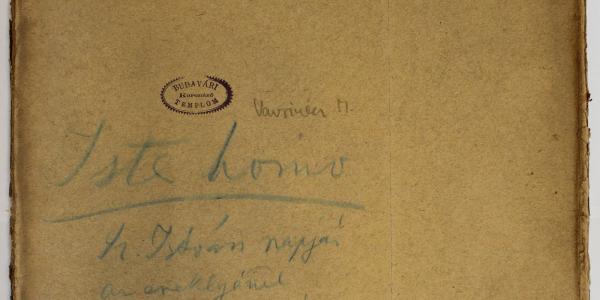 BUDAVÁRI
Koronázó
TEMPLOM
Iste homo
Sz. István napjái
az ereklyénél